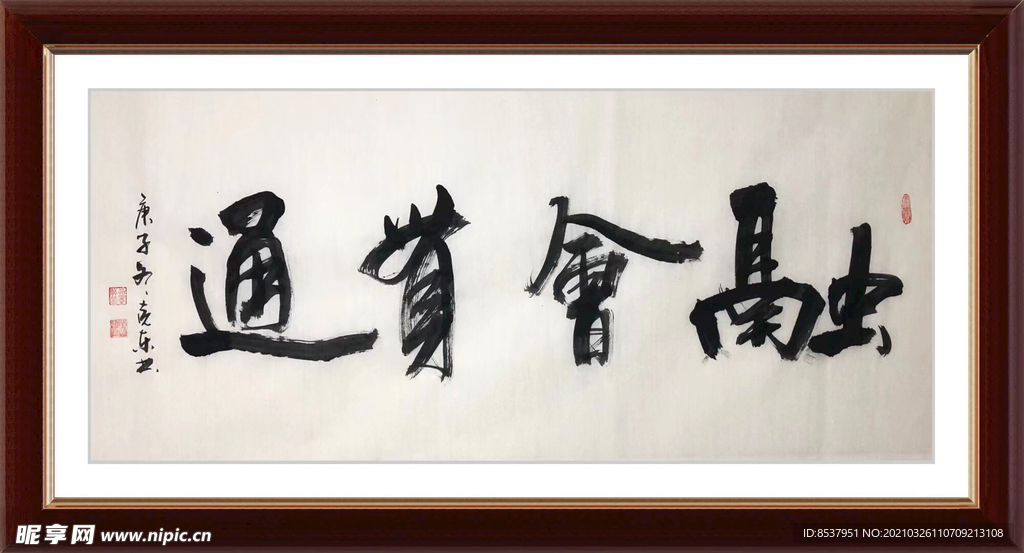 融會貫通
庚子冬尧东书
昵享网 www.nipic.cn
ID:8537951 NO:20210326110709213108